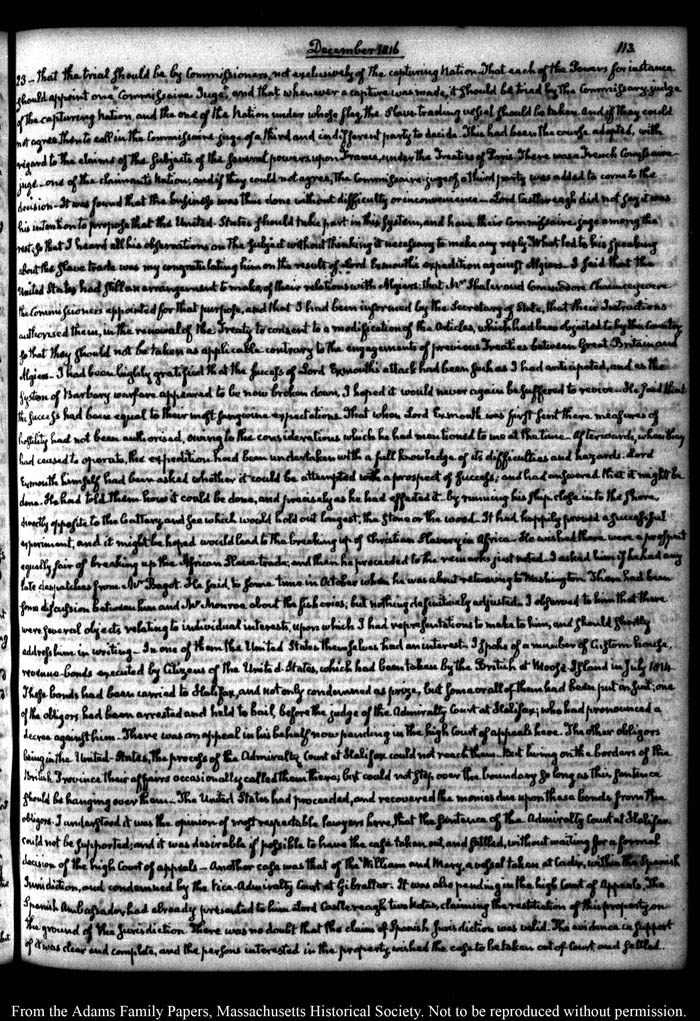 December 1816
113.
23 – that the trial should be by Commissioners, not exclusively of the capturing Nation. That each of the Powers for instance
should appoint one "Commissaire Juge," and that whenever a capture was made, it should be tried by the Commissary judge
of the capturing nation, and the one of the Nation under whose flag, the Slave trading vessel should be taken. And if they could
not agree then to call in the Commissaire-juge of a third and indifferent party to decide. This had been the course adopted, with
regard to the claims of the Subjects of the several powers upon France, under the Treaties of Paris. There was a French Commissaire
juge – one of the claimants Nation; and if they could not agree, the Commissaire-juge of a third party was added to come to the
decision – It was found that the business was thus done without difficulty or inconvenience – Lord Castlereagh did not say it was
his intention to propose that the United States should take part in this System, and have their Commissaire-juge among the
rest; so that I heard all his observations on the subject without thinking it necessary to make any reply. What led to his speaking
about the Slave trade was my congratulating him on the result of Lord Exmouth's expedition against Algiers – I said that the
United States had still an arrangement to make, of their relations with Algiers: that Mr Shaler and Commodore Chauncey were
the Commissioners appointed for that purpose, and that I had been informed by the Secretary of State, that their Instructions
authorised them, in the renewal of the Treaty to consent to a modification of the Articles, which had been objected to by this Country,
so that they should not be taken as applicable contrary to the engagements of previous Treaties between Great Britain and
Algiers – I had been highly gratified that the success of Lord Exmouth's attack had been such as I had anticipated, and as the
System of Barbary warfare appeared to be now broken down, I hoped it would never again be suffered to revive – He said that
the success had been equal to their most sanguine expectations. That when Lord Exmouth was first sent there measures of
hostility had not been authorised, owing to the considerations which he had mentioned to me at the time – Afterwards, when they
had ceased to operate, the expedition had been undertaken with a full knowledge of its difficulties and hazards. Lord
Exmouth himself had been asked whether it could be attempted with a prospect of success; and had answered that it might be
done. He had told them how it could be done, and precisely as he had effected it. by running his ship close in to the Shore,
directly opposite to the battery, and see which would hold out longest, the stone or the wood. It had happily proved a successful
experiment, and it might be hoped would lead to the breaking up of Christian Slavery in Africa – He wished there were a prospect
equally fair of breaking up the African Slave trade; and then he proceeded to the remarks just noted. I asked him if he had any
late despatches from Mr Bagot. He said, to some time in October when he was about returning to Washington. There had been
some discussion between him and Mr Monroe about the fisheries; but nothing definitively adjusted. I observed to him that there
were several objects relating to individual interests, upon which I had representations to make to him, and should shortly
address him in writing – In one of them the United States themselves had an interest. I spoke of a number of Custom house,
revenue-bonds executed by Citizens of the United States, which had been taken by the British at Moose Island in July 1814.
These bonds had been carried to Halifax, and not only condemned as prize, but some or all of them had been put on suit; one
of the obligors had been arrested and held to bail, before the judge of the Admiralty Court at Halifax; who had pronounced a
decree against him – There was an appeal in his behalf now pending in the high Court of appeals here. The other obligors
being in the United-States, the process of the Admiralty Court at Halifax could not reach them – But living on the borders of the
British Province their affairs occasionally called them there; but could not step over the boundary so long as this sentence
should be hanging over them – The United States had proceeded, and recovered the monies due upon these bonds from the
obligors. I understood it was the opinion of most respectable lawyers here, that the sentence of the Admiralty Court at Halifax
could not be supported; and it was desirable if possible to have the case taken out, and settled, without waiting for a formal
decision of the high Court of appeals – Another case was that of the William and Mary, a vessel taken at Cadiz, within the Spanish
Jurisdiction, and condemned by the Vice-Admiralty Court at Gibraltar. It was also pending in the high Court of Appeals. The
Spanish Ambassador had already presented to him Lord Castlereagh two Notes, claiming the restitution of this property, on
the ground of the Jurisdiction. There was no doubt that the claim of Spanish Jurisdiction was valid. The evidence in support
of it was clear and complete, and the persons interested in the property wished the case to be taken out of Court and settled.
From the Adams Family Papers, Massachusetts Historical Society. Not to be reproduced without permission.